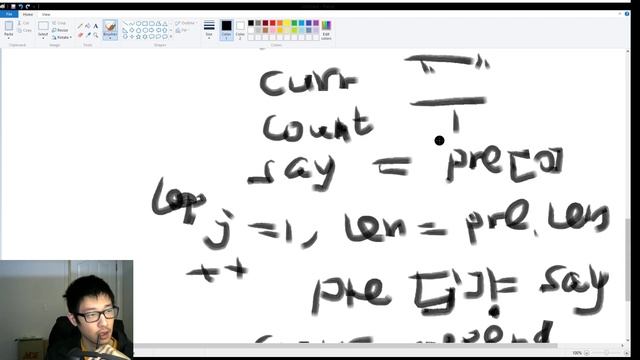 File Home View
Paste Cut Copy Clipboard
Select Crop Resize Rotate Image
Tools
Brushes
Shapes Outline Fill
Size
Color 1 Color 2 Edit colors Colors
curr " "
count 1
say = pre[0]
loop j = 1, len = pre.len
++
pre [j] != say
100%